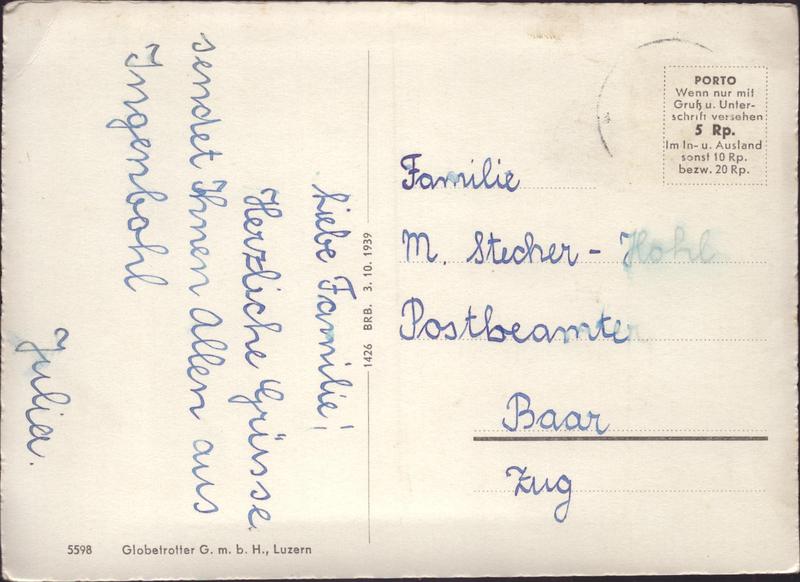 Liebe Familie!
Herzliche Grüsse
sendet Ihnen Allen aus
Ingenbohl
Julia.
1426 BRB. 3. 10. 1939
PORTO
Wenn nur mit
Gruß u. Unter-
schrift versehen
5 Rp.
Im In- u. Ausland
sonst 10 Rp.
bezw. 20 Rp.
Familie
M. Stecher - Hohl
Postbeamter
Baar
Zug
5598 Globetrotter G. m. b. H., Luzern